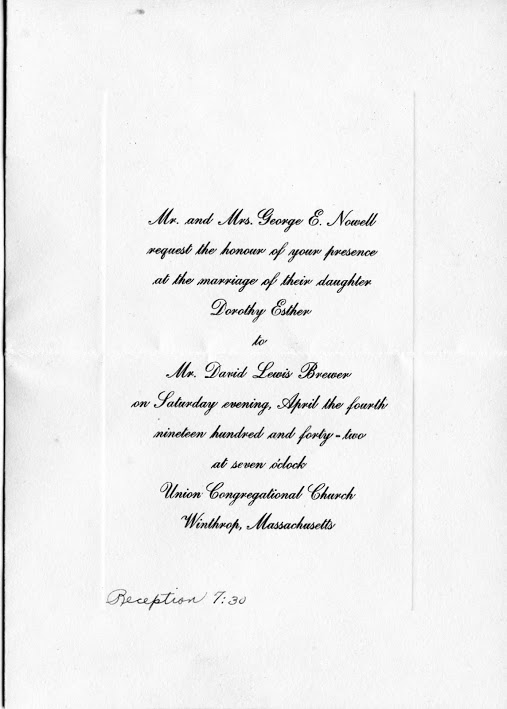 Mr. and Mrs. George E. Nowell
request the honour of your presence
at the marriage of their daughter
Dorothy Esther
to
Mr. David Lewis Brewer
on Saturday evening, April the fourth
nineteen hundred and forty-two
at seven o'clock
Union Congregational Church
Winthrop, Massachusetts
Reception 7:30